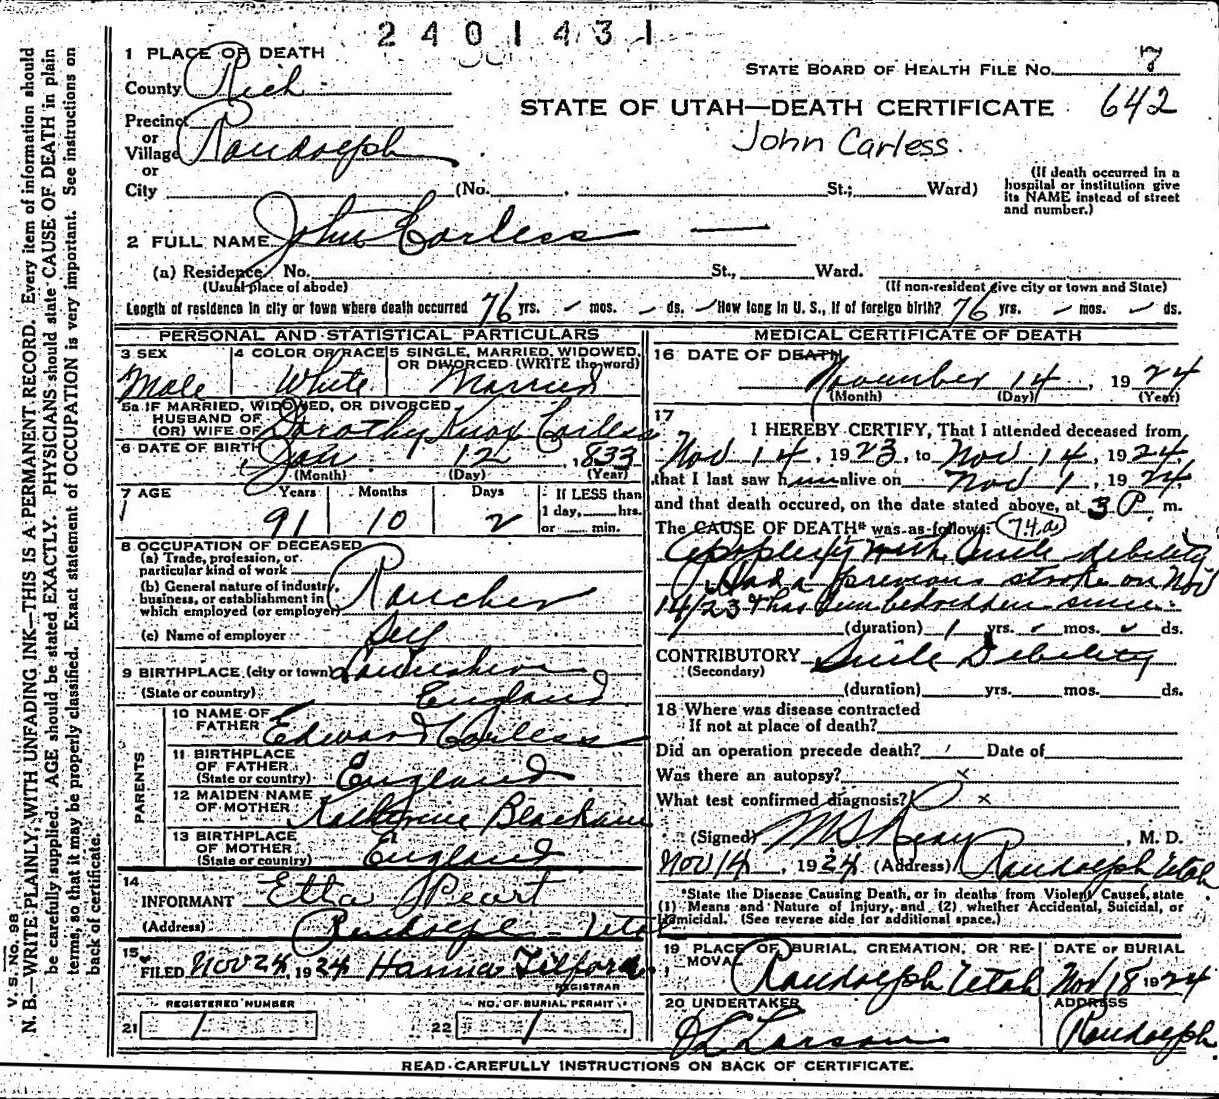 2401431
1 PLACE OF DEATH
STATE BOARD OF HEALTH FILE No. 7
County Rich
STATE OF UTAH—DEATH CERTIFICATE 642
Precinct
or
Village Randolph
John Carless.
or
City (No. , St.; Ward)
(If death occurred in a
hospital or institution give
its NAME instead of street
and number.)
2 FULL NAME John Carless —
(a) Residence, No. St., Ward.
(Usual place of abode) (If non-resident give city or town and State)
Length of residence in city or town where death occurred 76 yrs. - mos. - ds. How long in U. S., if of foreign birth? 76 yrs. - mos. - ds.
PERSONAL AND STATISTICAL PARTICULARS
3 SEX
Male
4 COLOR OR RACE
White
5 SINGLE, MARRIED, WIDOWED,
OR DIVORCED (WRITE the word)
Married
5a IF MARRIED, WIDOWED, OR DIVORCED
HUSBAND OF
(OR) WIFE OF Dorothy Knox Carless
6 DATE OF BIRTH Jan 12, 1833
(Month) (Day) (Year)
7 AGE Years Months Days
91 10 2
If LESS than
1 day, hrs.
or min.
8 OCCUPATION OF DECEASED
(a) Trade, profession, or
particular kind of work
(b) General nature of industry,
business, or establishment in
which employed (or employer) Rancher
(c) Name of employer Self
9 BIRTHPLACE (city or town)
(State or country) England
PARENTS
10 NAME OF
FATHER Edward Carless
11 BIRTHPLACE
OF FATHER
(State or country) England
12 MAIDEN NAME
OF MOTHER Katherine
13 BIRTHPLACE
OF MOTHER
(State or country) England
14
INFORMANT Etta Peart
(Address) Randolph - Utah
15
FILED Nov 24, 1924 Hanna Tilford
REGISTRAR
REGISTERED NUMBER
21 1
NO. OF BURIAL PERMIT
22 1
MEDICAL CERTIFICATE OF DEATH
16 DATE OF DEATH
November 14, 1924
(Month) (Day) (Year)
17
I HEREBY CERTIFY, That I attended deceased from
Nov 14, 1923, to Nov 14, 1924,
that I last saw him alive on Nov 1, 1924,
and that death occured, on the date stated above, at 3 P. m.
The CAUSE OF DEATH* was as follows: 74a
Apoplexy with Senile debility
Had a previous stroke on Nov
14/23 & has been bedridden since.
(duration) 1 yrs. - mos. - ds.
CONTRIBUTORY Senile Debility
(Secondary)
(duration) yrs. mos. ds.
18 Where was disease contracted
If not at place of death?
Did an operation precede death? Date of
Was there an autopsy? x
What test confirmed diagnosis? x
(Signed) , M. D.
Nov 14, 1924 (Address) Randolph Utah
*State the Disease Causing Death, or in deaths from Violent Causes, state
(1) Means and Nature of Injury, and (2) whether Accidental, Suicidal, or
Homicidal. (See reverse side for additional space.)
19 PLACE OF BURIAL, CREMATION, OR RE-
MOVAL
Randolph Utah
DATE OF BURIAL
Nov 18 1924
20 UNDERTAKER
Larson
ADDRESS
Randolph
READ CAREFULLY INSTRUCTIONS ON BACK OF CERTIFICATE.
V. S.—No. 98
N. B.—WRITE PLAINLY, WITH UNFADING INK—THIS IS A PERMANENT RECORD. Every item of information should
be carefully supplied. AGE should be stated EXACTLY. PHYSICIANS should state CAUSE OF DEATH in plain
terms, so that it may be properly classified. Exact statement of OCCUPATION is very important. See instructions on
back of certificate.